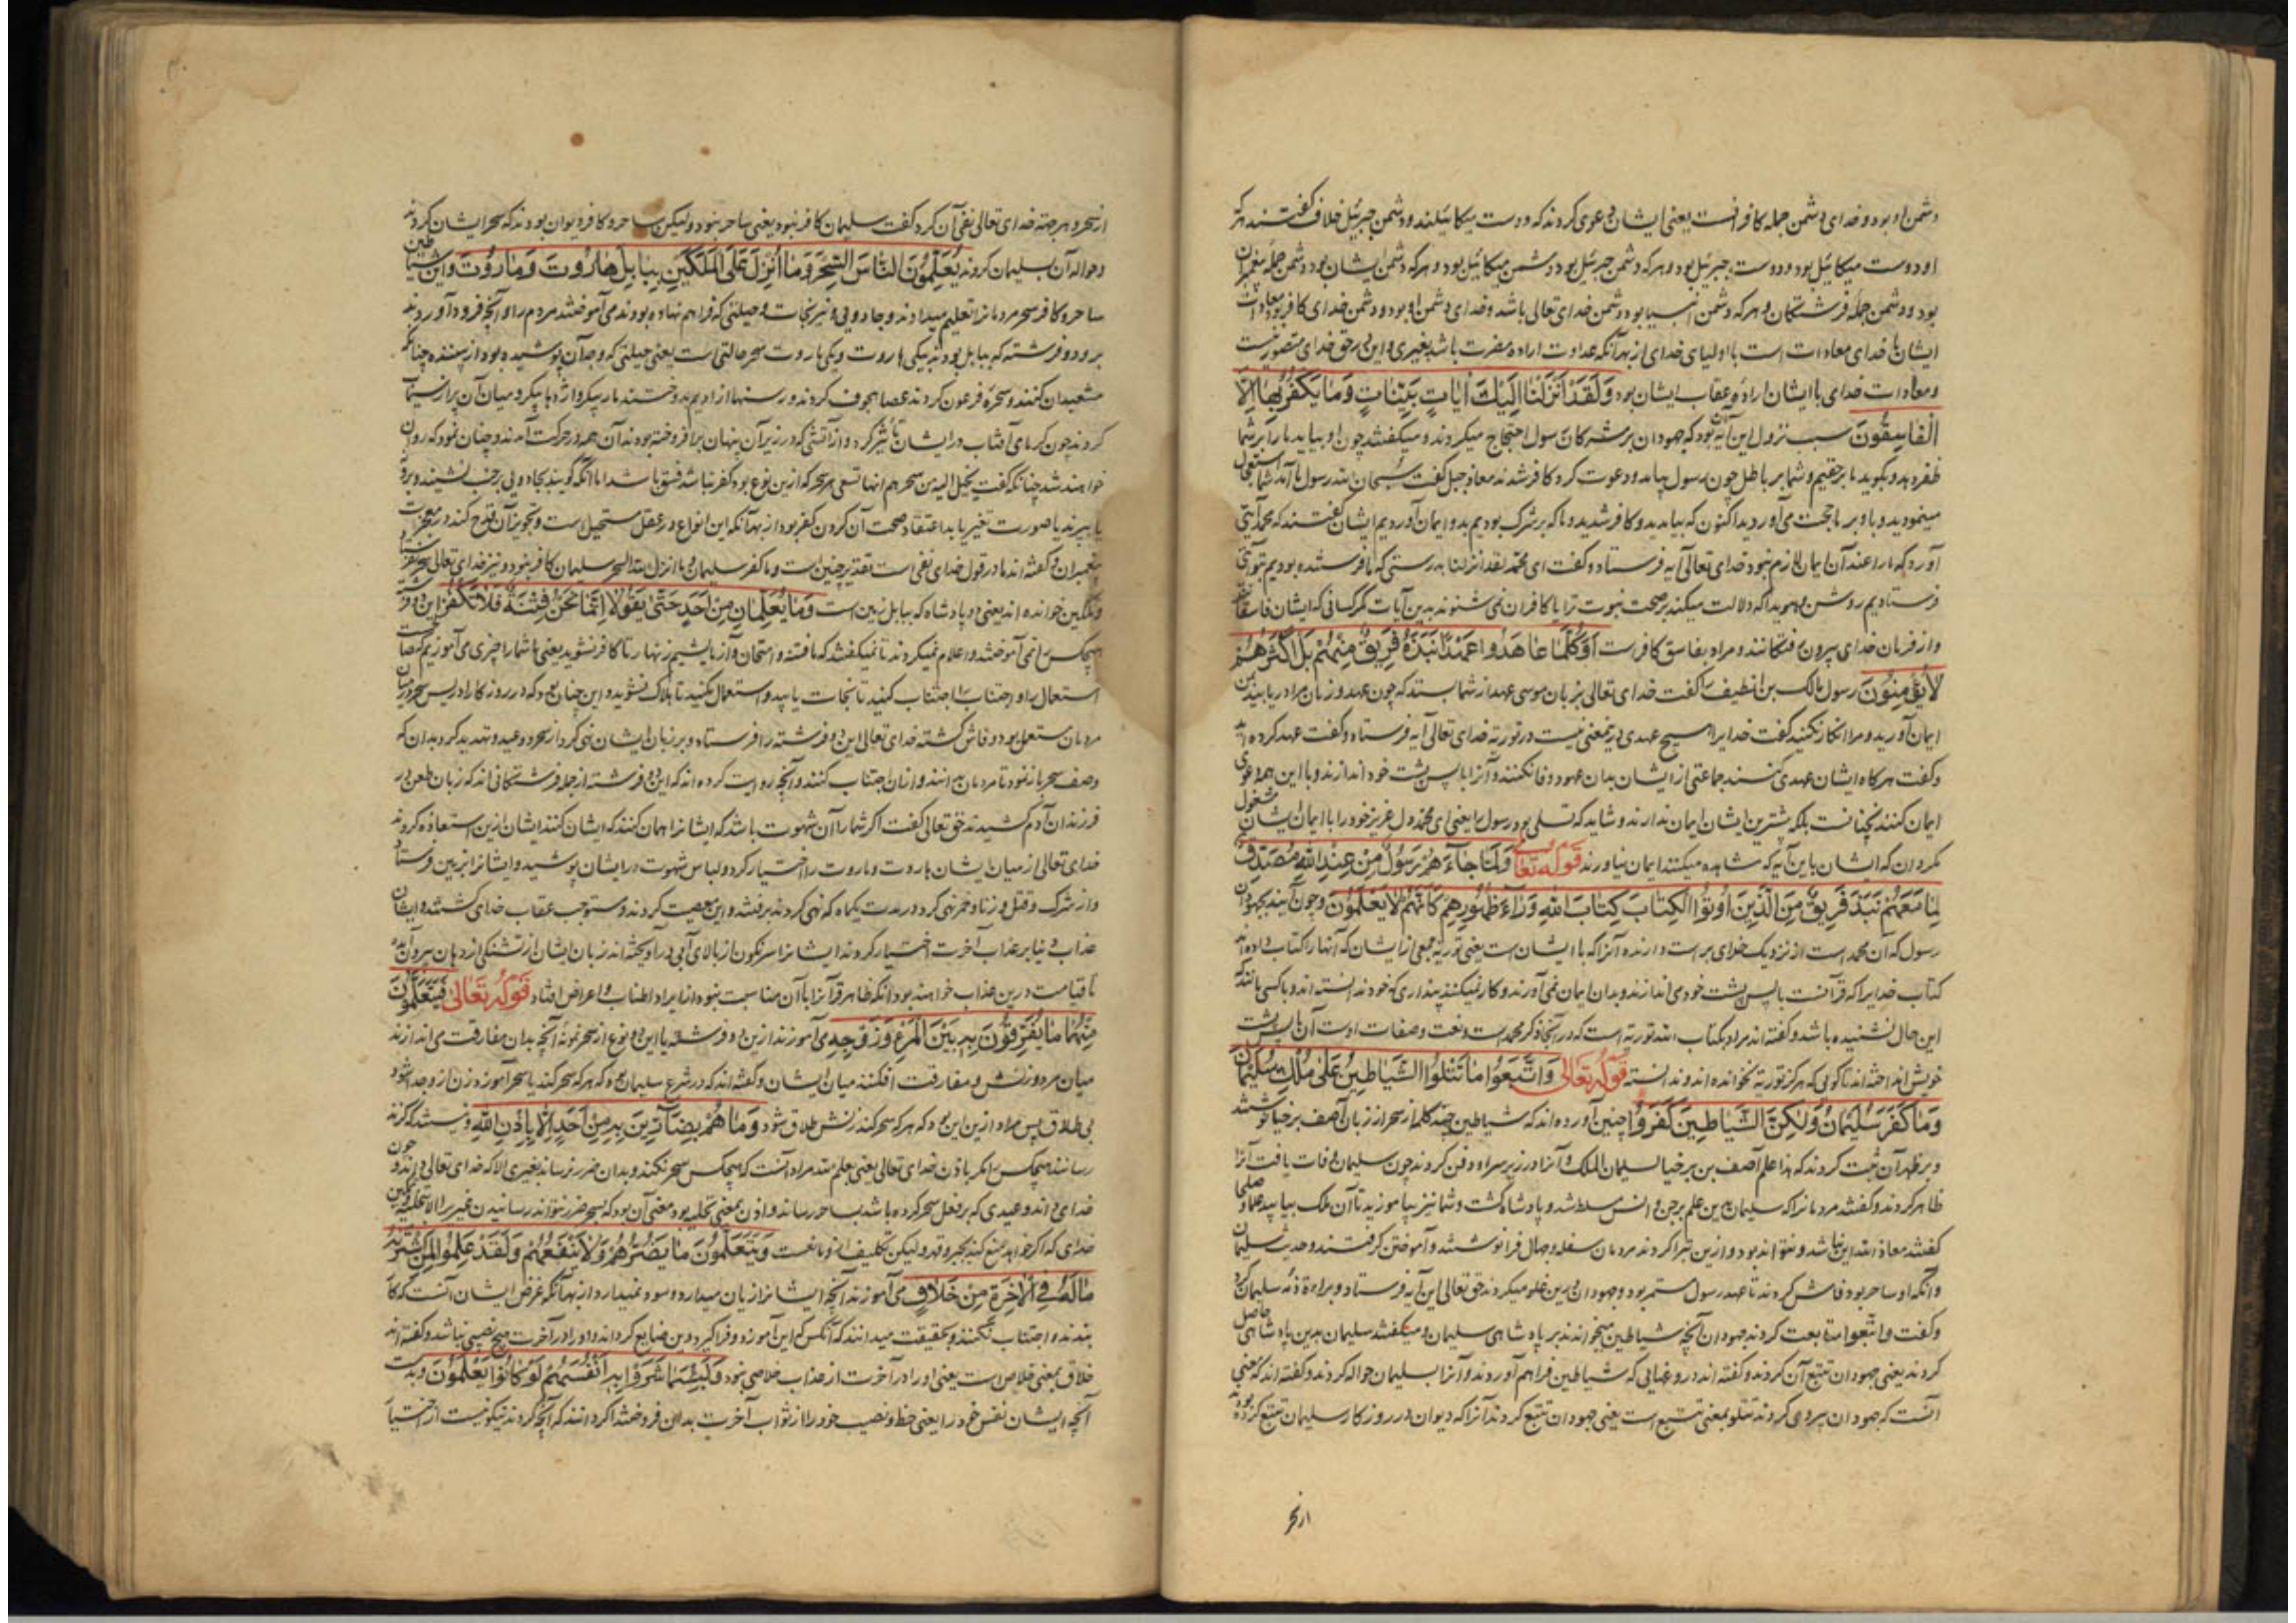 دشمن او بود و خدای دشمن جمله کافرانست یعنی ایشان دعوی کردند که دوست میکائیلند و دشمن جبرئیل خلاف گفتند هر که
او دوست میکائیل بود دوست جبرئیل بود و هر که دشمن جبرئیل بود دشمن میکائیل بود و هر که دشمن ایشان بود دشمن جمله پیغمبران
بود و دشمن جمله فرشتگان و هر که دشمن انبیا بود دشمن خدای تعالی باشد و خدای دشمن او بود و دشمن خدای کافر بود و معادات
ایشان با خدای معادات است با اولیای خدای از بهر آنکه عداوت اراده مضرت باشد بغیری و این در حق خدای متصور نیست
و معادات خدای با ایشان اراده عقاب ایشان بود وَلَقَدْ أَنْزَلْنَا إِلَيْكَ آيَاتٍ بَيِّنَاتٍ وَمَا يَكْفُرُ بِهَا إِلَّا
الْفَاسِقُونَ سبب نزول این آیه آن بود که جهودان بر مشرکان رسول احتجاج میکردند و میگفتند چون او بیاید ما را بر شما
ظفر دهد و بگوید ما بر حقیم و شما بر باطل چون رسول بیامد و دعوت کرد کافر شدند معاذ جبل گفت سبحان الله رسول ما آمد شما
مینمودید و با و بر ما حجت می آوردید اکنون که بیامد بدو کافر شدید و ما که بر شرک بودیم بدو ایمان آوردیم ایشان گفتند که محمد آیتی
آورد که ما را عند آن ایمان لازم نبود خدای تعالی آیه فرستاد و گفت ای محمد لقد انزلنا بدرستی که ما فرستاده بودیم بتو آیاتی
فرستادیم روشن و هویدا که دلالت میکند بر صحت نبوت ترا با کافران نمی شنوند بدین آیات مگر کسانی که ایشان فاسقانند
و از فرمان خدای بیرون فتگانند و مراد بفاسق کافرست أَوَكُلَّمَا عَاهَدُوا عَهْدًا نَبَذَهُ فَرِيقٌ مِنْهُمْ بَلْ أَكْثَرُهُمْ
لَا يُؤْمِنُونَ رسول مالک بن الضیف را گفت خدای تعالی بزبان موسی عهد از شما بستد که چون عهد و زمان مرا دریابید بمن
ایمان آورید و مرا انکار نکنید گفت خدایرا هیچ عهدی درین معنی نیست در توریة خدای تعالی آیه فرستاد و گفت عهد کرده اید
و گفت هر گاه ایشان عهدی کنند جماعتی از ایشان بدان عهود وفا نکنند و آنرا با پس پشت خود اندازند و با این همه دعوی
ایمان کنند نه چنانست بلکه بیشترین ایشان ایمان ندارند و شاید که تسلی بود رسول را یعنی ای محمد دل عزیز خود را با ایمان ایشان مشغول
مکردان که ایشان باین آیه که مشاهده میکنند ایمان نیاورند قوله تعالی وَلَمَّا جَاءَهُمْ رَسُولٌ مِنْ عِنْدِ اللَّهِ مُصَدِّقٌ
لِمَا مَعَهُمْ نَبَذَ فَرِيقٌ مِنَ الَّذِينَ أُوتُوا الْكِتَابَ كِتَابَ اللَّهِ وَرَاءَ ظُهُورِهِمْ كَأَنَّهُمْ لَا يَعْلَمُونَ و چون آیند بجهودان
رسول که آن محمد است از نزدیک خدای براست دارنده آنرا که با ایشان است یعنی توریة جمعی از ایشان که آنها را کتاب داده اند
کتاب خدایرا که قرآنست با پس پشت خود می اندازند و بدان ایمان نمی آورند و کار نمیکنند پنداری که خود ندانسته اند و با کسی مانند که
این حال نشنیده باشد و گفته اند مراد بکتاب الله توریة است که در آنجا ذکر محمد است و نعت و صفات اوست آن با پس پشت
خویش انداخته اند تا گویی که هرگز توریة نخوانده اند و ندانسته قوله تعالی وَاتَّبَعُوا مَا تَتْلُو الشَّيَاطِينُ عَلَى مُلْكِ سُلَيْمَانَ
وَمَا كَفَرَ سُلَيْمَانُ وَلَكِنَّ الشَّيَاطِينَ كَفَرُوا چنین آورده اند که شیاطین چند کلمه از سحر از زبان آصف برخیا نوشتند
و بر ظهر آن ثبت کردند که هذا علم آصف بن برخیا لسلیمان الملک و آنرا در زیر سراو دفن کردند چون سلیمان وفات یافت آنرا
ظاهر کردند و گفتند مردمانرا که سلیمان بدین علم بر جن و انس مسلط شد و پادشاه گشت و شما نیز بیاموزید تا آن ملک بیابید علما و صلحا
گفتند معاذ الله این نباشد و نتواند بود و ازین تبرا کردند مردمان سفله و جهال فرا نوشتند و آموختن گرفتند و حدیث سلیمان
و آنکه او ساحر بود فاش کردند تا عهد رسول مستمر بود و جهودان درین غلو میکردند حق تعالی این آیه فرستاد و براءة ذمه سلیمان کرد
و گفت و اتبعوا متابعت کردند جهودان آنچه شیاطین میخواندند بر پادشاهی سلیمان و میگفتند سلیمان بدین پادشاهی حاصل
کردند یعنی جهودان تتبع آن کردند و گفته اند دروغهایی که شیاطین فراهم آوردند و آنرا بسلیمان حواله کردند و گفته اند که معنی
آنست که جهودان پیروی کردند تتلو بمعنی تتبع است یعنی جهودان تتبع کردند آنرا که دیوان در روزگار سلیمان تتبع کرده بودند
از سحر
از سحر و بهر جهته خدای تعالی نفی آن کرد گفت سلیمان کافر نبود یعنی ساحر نبود ولیکن ساحر و کافر دیوان بودند که سحر ایشان کردند
و حواله آن بسلیمان کردند يُعَلِّمُونَ النَّاسَ السِّحْرَ وَمَا أُنْزِلَ عَلَى الْمَلَكَيْنِ بِبَابِلَ هَارُوتَ وَمَارُوتَ و این شیاطین
ساحر و کافر سحر مردمانرا تعلیم میدادند و جادویی و نیرنجات و حیلتی که فراهم نهاده بودند می آموختند مردم را و آنچه فرود آوردند
بر دو فرشته که ببابل بودند یکی هاروت و یکی ماروت سحر حالتی است یعنی حیلتی که وجه آن پوشیده بود از بیننده چنانکه
مشعبدان کنند و سحره فرعون کردند عصا مجوف کردند و رسنها از ادیم بدوختند مار پیکر و اژدها پیکر و میان آن پر از سیماب
کردند چون گرمای آفتاب در ایشان تأثیر کرد و از آتشی که در زیر آن پنهان برافروخته بودند آن همه در حرکت آمدند و چنان نمود که روان
خواهند شد چنانکه گفت یخیل الیه من سحرهم انها تسعی هر سحر که ازین نوع بود کفر نباشد فسق باشد اما آنکه گویند بجادویی بر خنب نشیند و برود
یا بپرند یا صورت تغییر یابد اعتقاد صحت آن کردن کفر بود از بهر آنکه این انواع در عقل مستحیل است و تجویز آن قدح کند در معجزات
پیغمبران و گفته اند ما در قول خدای نفی است تقدیر چنین است و ما کفر سلیمان و ما انزل الله السحر سلیمان کافر نبود و نیز خدای تعالی سحر نفرستاد
و ملکین خوانده اند یعنی دو پادشاه که ببابل زمین است وَمَا يُعَلِّمَانِ مِنْ أَحَدٍ حَتَّى يَقُولَا إِنَّمَا نَحْنُ فِتْنَةٌ فَلَا تَكْفُرْ این دو فرشته
هیچکس را نمی آموختند و اعلام نمیکردند تا نمیگفتند که ما فتنه و امتحان و آزمایشیم زنهار تا کافر نشوید یعنی ما شما را چیزی می آموزیم که
استعمال را و اجتناب را اجتناب کنید تا نجات یابید و استعمال مکنید تا هلاک نشوید و این چنان بود که در روزگار ادریس سحر در میان
مردمان مستعمل بود و فاش گشته خدای تعالی این دو فرشته را فرستاد و بر زبان ایشان نهی کرد از سحر و وعید و تهدید کرد بدان که
وصف سحر باز نمود تا مردمان بدانند و از آن اجتناب کنند و آنچه روایت کرده اند که این دو فرشته از جمله فرشتگانی اند که زبان طعن در
فرزندان آدم کشیدند حق تعالی گفت اگر شما را آن شهوت باشد که ایشانرا همان کنند که ایشان کنند ایشان ازین استعاذه کردند
خدای تعالی از میان ایشان هاروت و ماروت را اختیار کرد و لباس شهوت در ایشان پوشید و ایشانرا بزمین فرستاد
و از شرک و قتل و زنا و خمر نهی کرد و در مدت یکماه که نهی کردند برفتند و این معصیت کردند و مستوجب عقاب خدای گشتند و ایشان
عذاب دنیا بر عذاب آخرت اختیار کردند ایشانرا سرنگون از بالای آبی درآویخته اند زبان ایشان از تشنگی از دهان بیرون آمده
تا قیامت درین عذاب خواهند بود آنگه ظاهر قرآنرا با آن مناسبت نبود از ایراد اطناب و اعراض افتاد قوله تعالی فَيَتَعَلَّمُونَ
مِنْهُمَا مَا يُفَرِّقُونَ بِهِ بَيْنَ الْمَرْءِ وَزَوْجِهِ می آموزند ازین دو فرشته یا این دو نوع از سحر نموند آنچه بدان مفارقت می اندازند
میان مرد و زنش و مفارقت افکنند میان ایشان و گفته اند که در شرع سلیمان بود که هر که سحر کند یا سحر آموزد زن از و جدا شود
بی طلاق پس مراد ازین این بود که هر که سحر کند زنش طلاق شود وَمَا هُمْ بِضَارِّينَ بِهِ مِنْ أَحَدٍ إِلَّا بِإِذْنِ اللَّهِ و نیستند که گزند
رسانند هیچکس را مگر باذن خدای تعالی یعنی بعلم الله مراد آنست که هیچکس سحر نکند و بدان ضرر نرساند بغیری الا که خدای تعالی داند و چون
خدای داند وعیدی که بر فعل سحر کرده باشد بساحر رساند و اذن بمعنی تخلیه بود معنی آن بود که بسحر ضرر نتوانند رسانیدن غیر را الا بتخلیه و تمکین
خدای که اگر خواهد منع کند بجبر و قهر و لیکن تکلیف از و مانعست وَيَتَعَلَّمُونَ مَا يَضُرُّهُمْ وَلَا يَنْفَعُهُمْ وَلَقَدْ عَلِمُوا لَمَنِ اشْتَرَاهُ
مَا لَهُ فِي الْآخِرَةِ مِنْ خَلَاقٍ می آموزند آنچه ایشانرا زیان میدارد و سود نمیدارد از بهر آنکه غرض ایشان آنست که کار
بندند و اجتناب نکنند و بحقیقت میدانند که آنکس که این آموزد و فرا گیرد و دین ضایع گرداند او را در آخرت هیچ نصیبی نباشد و گفته اند
خلاق بمعنی خلاص است یعنی او را در آخرت از عذاب خلاصی نبود وَلَبِئْسَمَا شَرَوْا بِهِ أَنْفُسَهُمْ لَوْ كَانُوا يَعْلَمُونَ و بدست
آنچه ایشان نفس خود را یعنی حظ و نصیب خود را از ثواب آخرت بدان فروختند اگر دانند که آنچه کردند نیکو نیست از اختیار